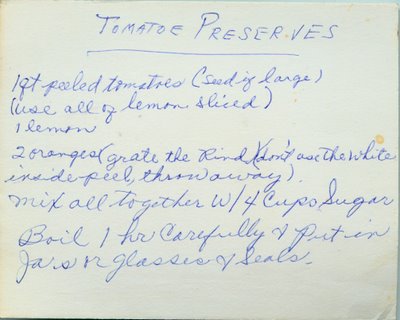 TOMATOE PRESERVES
1 qt peeled tomatoes (seed if large)
(use all of lemon sliced)
1 lemon
2 oranges (grate the rind) (don't use the white
inside peel, throw away).
Mix all together W/4 Cups Sugar
Boil 1 hr Carefully & Put in
Jars or glasses & Seals.